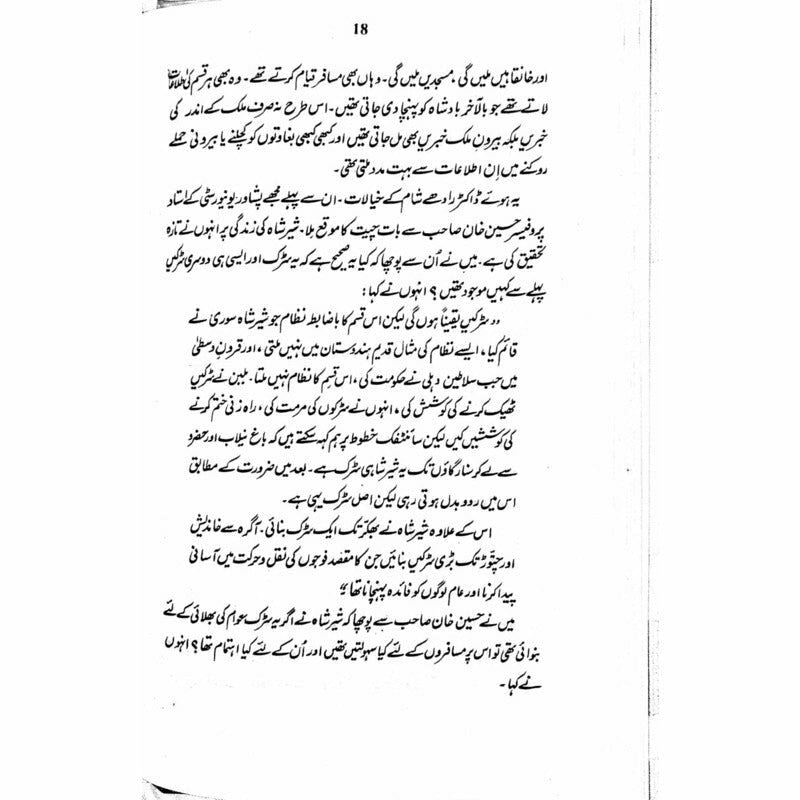 18
اور خانقاہیں ملیں گی، مسجدیں ملیں گی۔ وہاں بھی مسافر قیام کرتے تھے۔ وہ بھی ہر قسم کی اطلاعات
لاتے تھے جو بالآخر بادشاہ کو پہنچا دی جاتی تھیں۔ اس طرح نہ صرف ملک کے اندر کی
خبریں بلکہ بیرونِ ملک خبریں بھی مل جاتی تھیں اور کبھی کبھی بغاوتوں کو کچلنے یا بیرونی حملے
روکنے میں اِن اطلاعات سے بہت مدد ملتی تھی۔
یہ ہوئے ڈاکٹر رادھے شام کے خیالات۔ ان سے پہلے مجھے پشاور یونیورسٹی کے استاد
پروفیسر حسین خان صاحب سے بات چیت کا موقع ملا۔ شیر شاہ کی زندگی پر انہوں نے تازہ
تحقیق کی ہے۔ میں نے اُن سے پوچھا کہ کیا یہ صحیح ہے کہ یہ سڑک اور ایسی ہی دوسری سڑکیں
پہلے سے کہیں موجود تھیں؟ انہوں نے کہا:
”سڑکیں یقیناً ہوں گی لیکن اس قسم کا باضابطہ نظام جو شیر شاہ سوری نے
قائم کیا، ایسے نظام کی مثال قدیم ہندوستان میں نہیں ملتی، اور قرونِ وسطیٰ
میں جب سلاطین دہلی نے حکومت کی، اس قسم کا نظام نہیں ملتا۔ بلبن نے سڑکیں
ٹھیک کرنے کی کوشش کی، انہوں نے سڑکوں کی مرمت کی، راہ زنی ختم کرنے
کی کوششیں کیں لیکن سائنٹفک خطوط پر ہم کہہ سکتے ہیں کہ باغ نیلاب اور حضرو
سے لے کر سنار گاؤں تک یہ شیر شاہی سڑک ہے۔ بعد میں ضرورت کے مطابق
اس میں ردوبدل ہوتی رہی لیکن اصل سڑک یہی ہے۔
اس کے علاوہ شیر شاہ نے بھکّر تک ایک سڑک بنائی۔ آگرہ سے خاندیش
اور چتّوڑ تک بڑی سڑکیں بنائیں جن کا مقصد فوجوں کی نقل و حرکت میں آسانی
پیدا کرنا اور عام لوگوں کو فائدہ پہنچانا تھا“
میں نے حسین خان صاحب سے پوچھا کہ شیر شاہ نے اگر یہ سڑک عوام کی بھلائی کے لئے
بنوائی تھی تو اس پر مسافروں کے لئے کیا سہولتیں تھیں اور اُن کے لئے کیا اہتمام تھا؟ انہوں
نے کہا۔